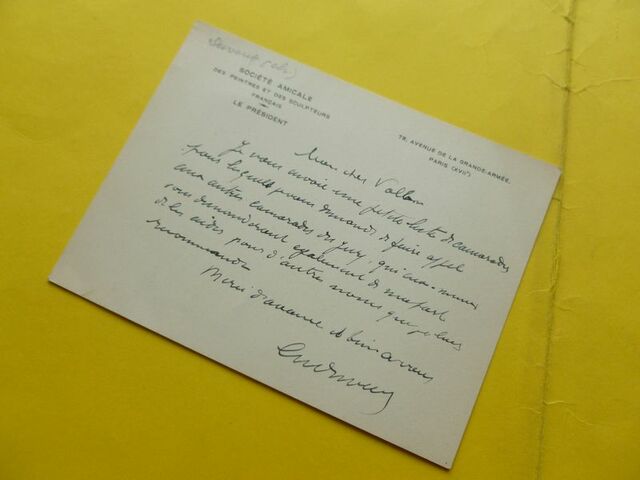 SOCIÉTÉ AMICALE
DES PEINTRES ET DES SCULPTEURS
FRANÇAIS
LE PRÉSIDENT
78, AVENUE DE LA GRANDE-ARMÉE,
PARIS (XVIIᵉ)
Mon cher
Je vous envoie une petite liste de camarades
pour lesquels je vous demande de faire appel
aux autres camarades du Jury, qui eux-mêmes
vous demanderont également de ma part
de les aider pour d'autres noms que je leur
recommande
Merci d'avance et bien à vous